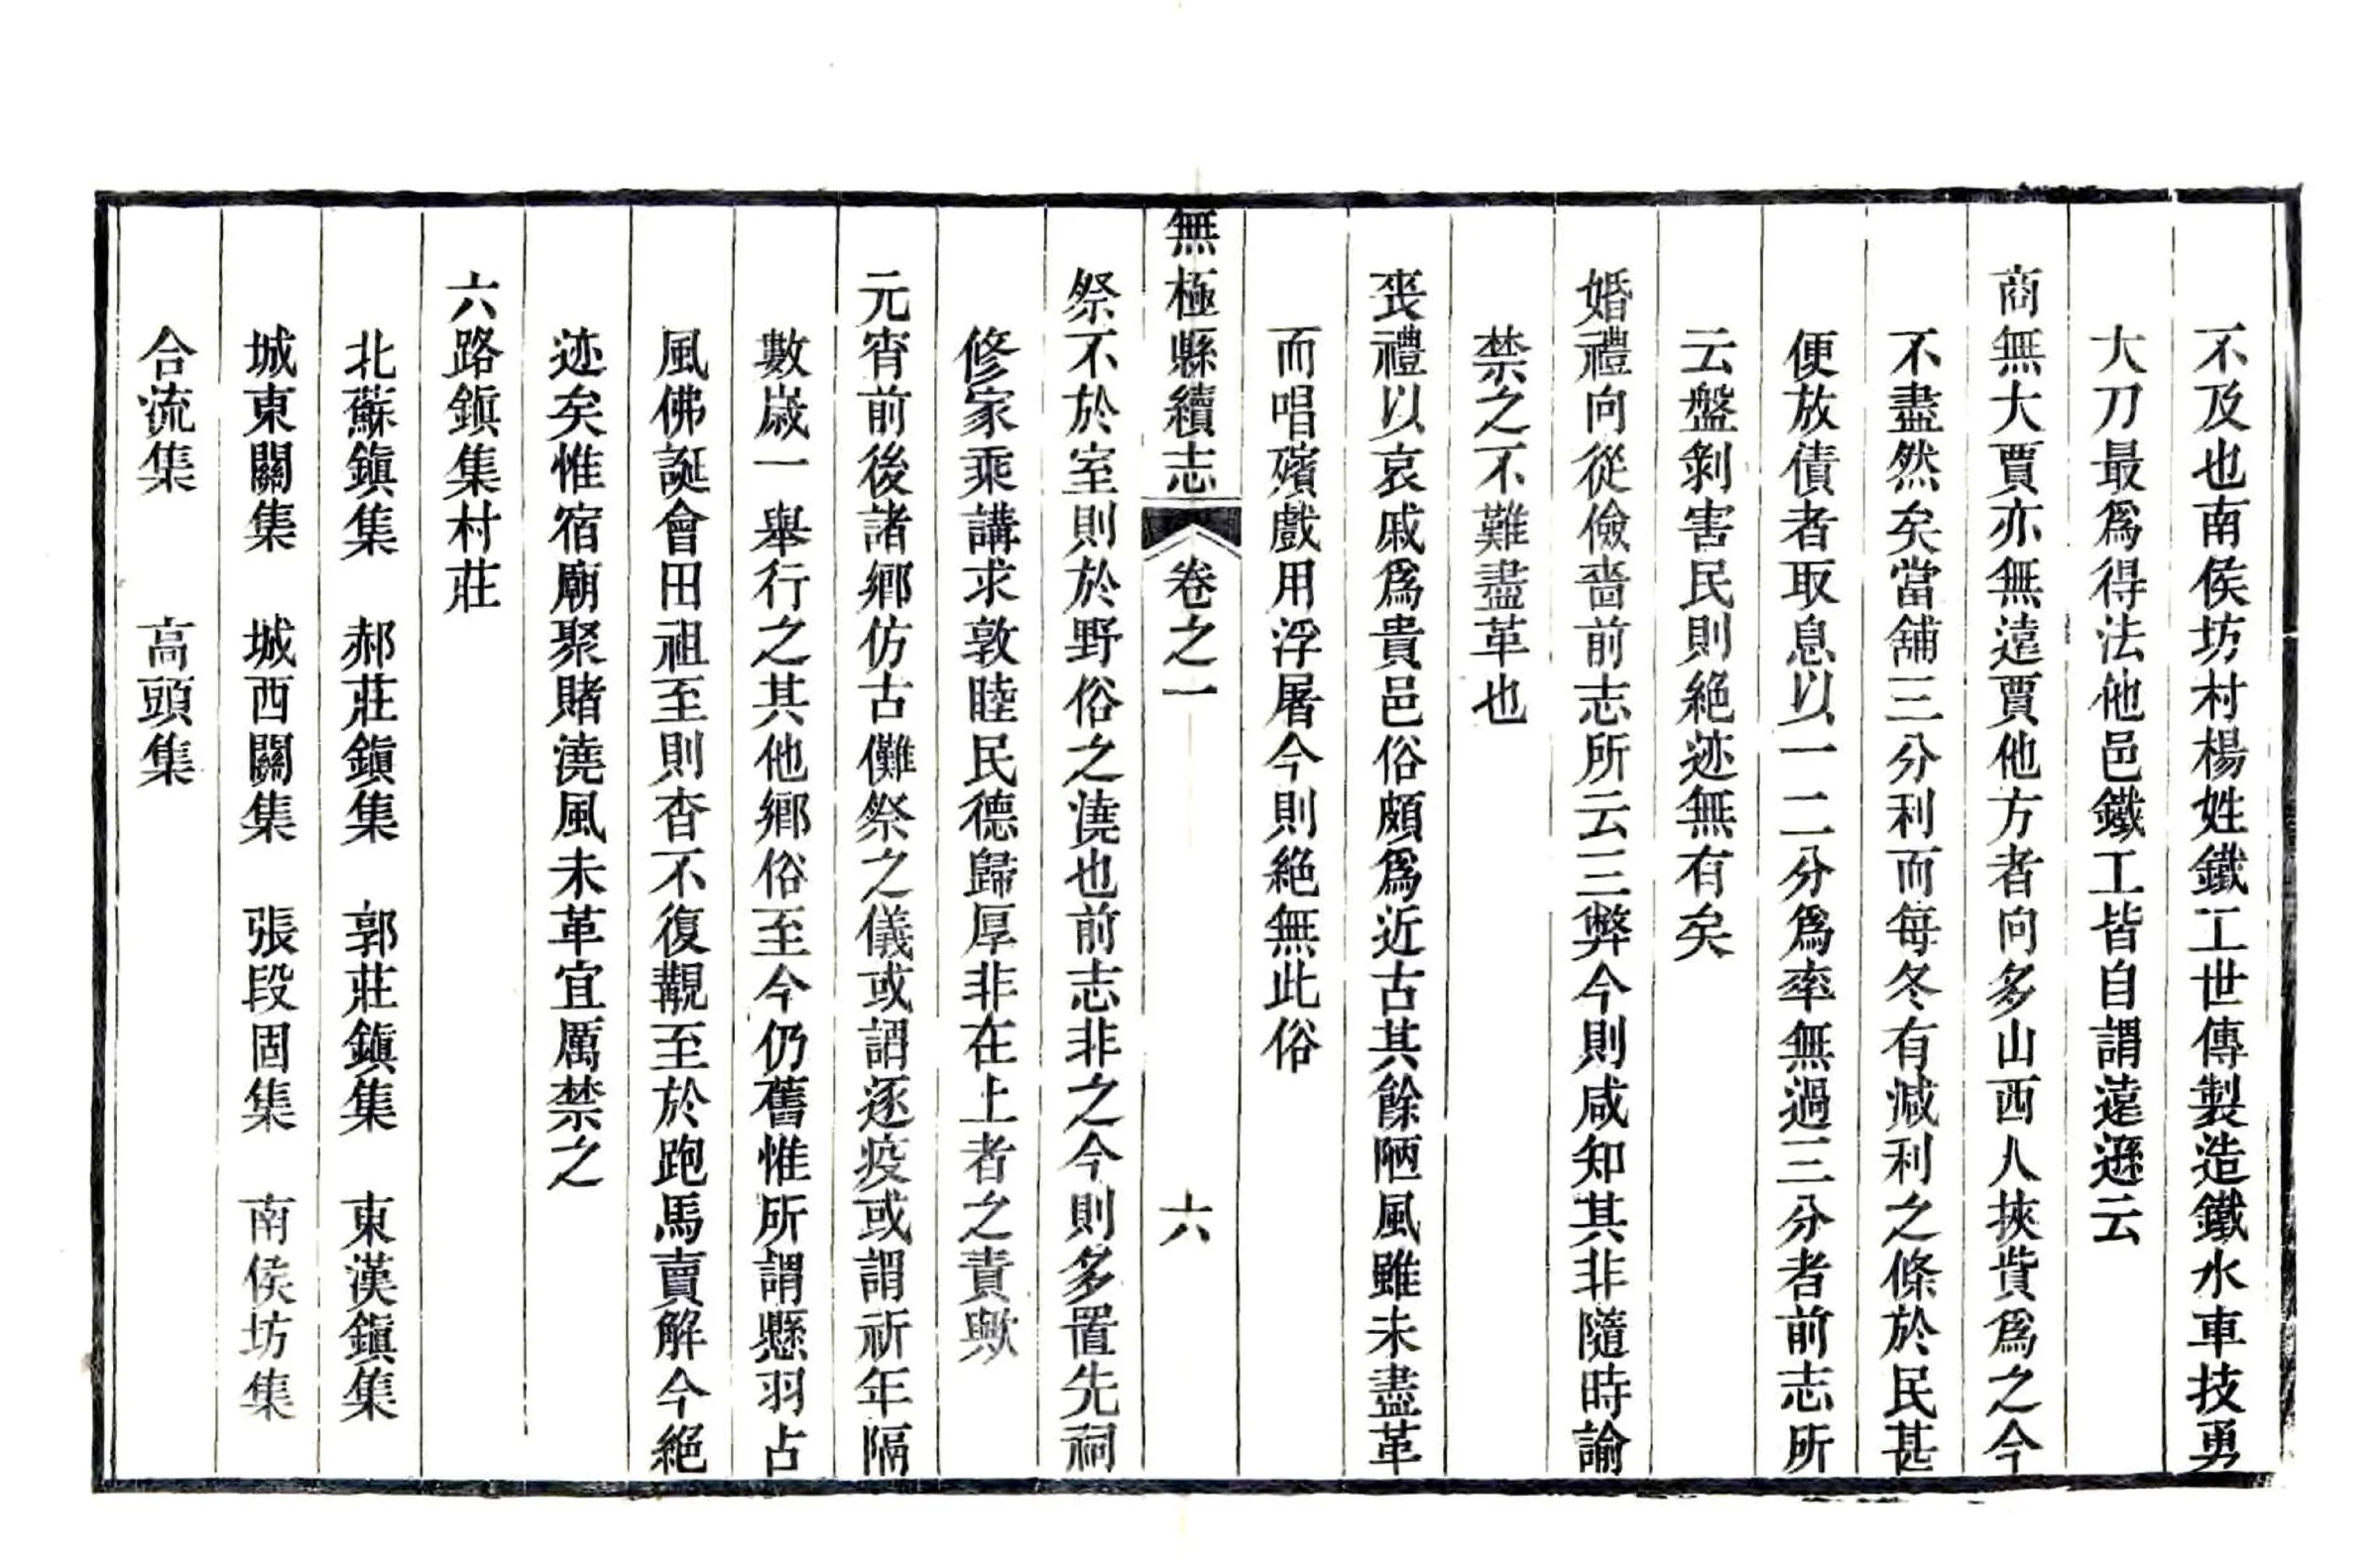 不及也南侯坊村楊姓鐵工世傳製造鐵水車技勇
大刀最爲得法他邑鐵工皆自謂遠遜云
商無大賈亦無遠賈他方者向多山西人挾貲爲之今
不盡然矣當舖三分利而每冬有減利之條於民甚
便放債者取息以一二分爲率無過三分者前志所
云盤剝害民則絕迹無有矣
婚禮向從儉嗇前志所云三弊今則咸知其非隨時諭
禁之不難盡革也
喪禮以哀戚爲貴邑俗頗爲近古其餘陋風雖未盡革
而唱殯戲用浮屠今則絕無此俗
無極縣續志 卷之一 六
祭不於室則於野俗之澆也前志非之今則多置先祠
修家乘講求敦睦民德歸厚非在上者之責歟
元宵前後諸鄉仿古儺祭之儀或謂逐疫或謂祈年隔
數歲一舉行之其他鄉俗至今仍舊惟所謂懸羽占
風佛誕會田祖至則杳不復覩至於跑馬賣解今絕
迹矣惟宿廟聚賭澆風未革宜厲禁之
六路鎭集村莊
北蘇鎭集 郝莊鎭集 郭莊鎭集 東漢鎭集
城東關集 城西關集 張段固集 南侯坊集
合流集 高頭集